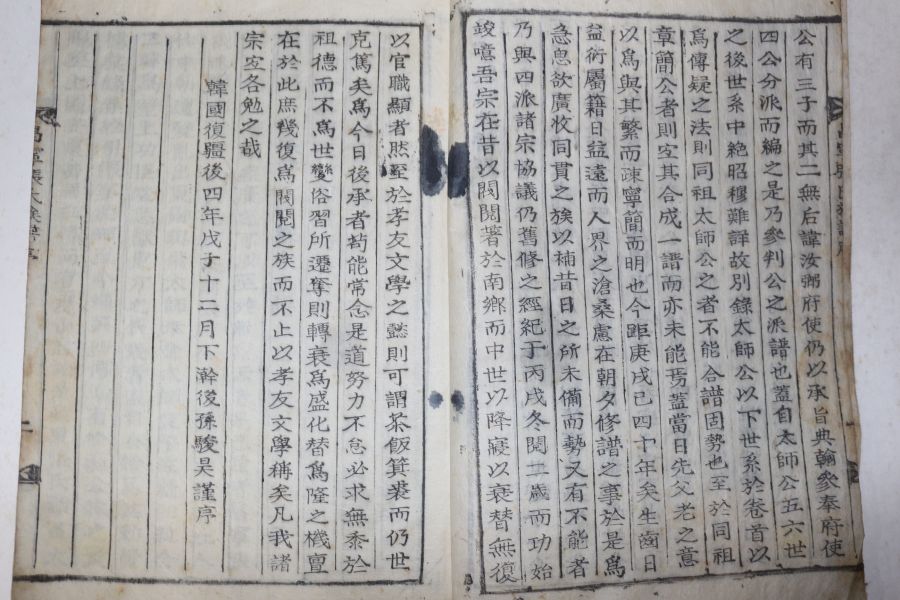 公有三子而其二無后諱汝弼府使仍以承旨典翰參奉府使
四公分派而編之是乃參判公之派譜也蓋自太師公五六世
之後世系中絶昭穆難詳故別錄太師公以下世系於卷首以
爲傳疑之法則同祖太師公之者不能合譜固勢也至於同祖
章簡公者則宜其合成一譜而亦未能焉蓋當日先父老之意
以爲與其繁而疎寧簡而明也今距庚戌已四十年矣生齒日
益術屬籍日益遠而人界之滄桑慮在朝夕修譜之事於是爲
急思欲廣收同貫之族以補昔日之所未備而勢又有不能者
乃與四派諸宗協議仍舊修之經紀于丙戌冬閱二歲而功始
竣噫吾宗在昔以閥閱著於南鄉而中世以降寢以衰替無復
以官職顯者然至於孝友文學之懿則可謂茶飯箕裘而仍世
克篤矣爲今日後承者苟能常念是道努力不怠必求無忝於
祖德而不爲世變俗習所遷奪則轉衰爲盛化替爲隆之機亶
在於此庶幾復爲閥閱之族而不止以孝友文學稱矣凡我諸
宗宜各勉之哉
韓國復疆後四年戊子十二月下澣後孫駿昊謹序
張氏族譜序